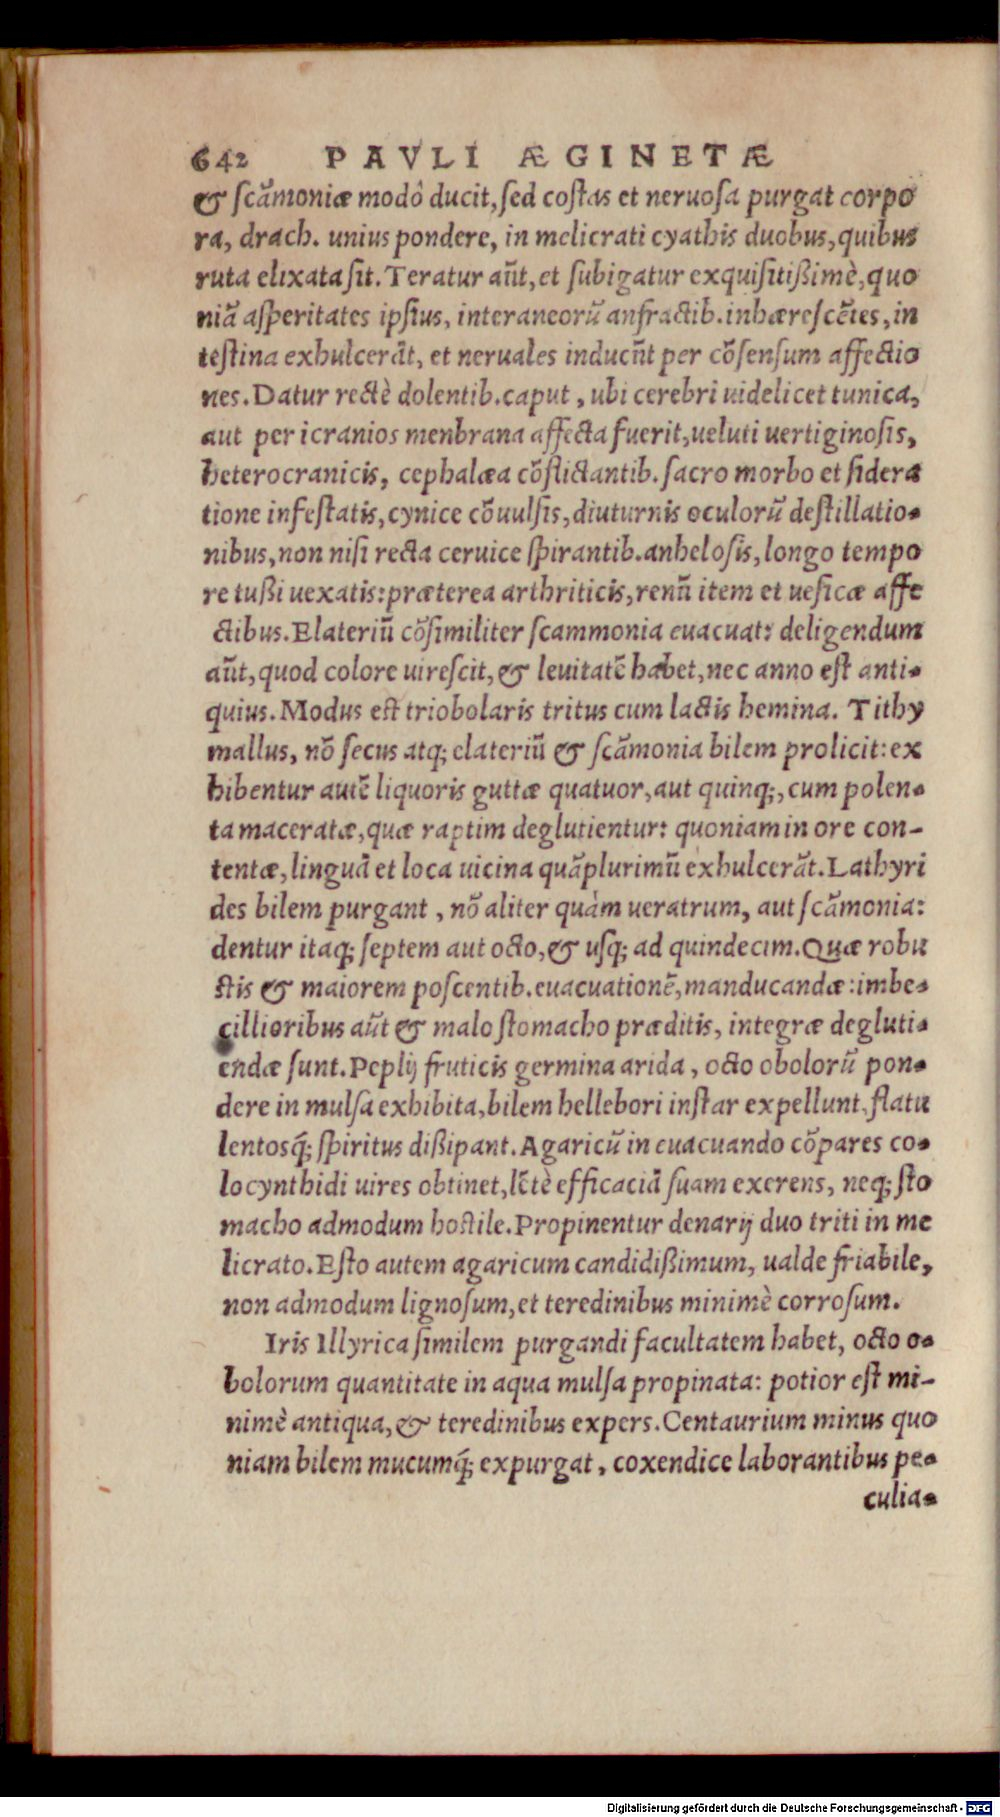 642 PAVLI ÆGINETÆ
& ſcãmoniæ modô ducit, ſed coſtas et neruoſa purgat corpo
ra, drach. unius pondere, in melicrati cyathis duobus, quibus
ruta elixata ſit. Teratur aũt, et ſubigatur exquiſitißimè, quo
niã aſperitates ipſius, interaneorũ anfractib. inhæreſcẽtes, in
teſtina exhulcerãt, et neruales inducũt per cõſenſum affectio
nes. Datur rectè dolentib. caput, ubi cerebri uidelicet tunica,
aut pericranios menbrana affecta fuerit, ueluti uertiginoſis,
heterocranicis, cephalæa cõflictantib. ſacro morbo et ſidera
tione infeſtatis, cynice cõuulſis, diuturnis oculorũ deſtillatio-
nibus, non niſi recta ceruice ſpirantib. anheloſis, longo tempo
re tußi uexatis: præterea arthriticis, renũ item et ueſicæ affe
ctibus. Elateriũ cõſimiliter ſcammonia euacuat: deligendum
aũt, quod colore uireſcit, & leuitatẽ habet, nec anno eſt anti-
quius. Modus eſt triobolaris tritus cum lactis hemina. Tithy
mallus, nõ ſecus atq; elateriũ & ſcãmonia bilem prolicit: ex
hibentur autẽ liquoris guttæ quatuor, aut quinq;, cum polen-
ta maceratæ, quæ raptim deglutientur: quoniam in ore con-
tentæ, linguã et loca uicina quãplurimũ exhulcerãt. Lathyri
des bilem purgant, nõ aliter quàm ueratrum, aut ſcãmonia:
dentur itaq; ſeptem aut octo, & uſq; ad quindecim. Quæ robu
ſtis & maiorem poſcentib. euacuationẽ, manducandæ: imbe-
cillioribus aũt & malo ſtomacho præditis, integræ degluti-
endæ ſunt. Peplij fruticis germina arida, octo obolorũ pon-
dere in mulſa exhibita, bilem hellebori inſtar expellunt, flatu
lentosq́; ſpiritus dißipant. Agaricũ in euacuando cõpares co-
locynthidi uires obtinet, lẽtè efficaciã ſuam exerens, neq; ſto
macho admodum hoſtile. Propinentur denarij duo triti in me
licrato. Eſto autem agaricum candidißimum, ualde friabile,
non admodum lignoſum, et teredinibus minimè corroſum.
Iris Illyrica ſimilem purgandi facultatem habet, octo o-
bolorum quantitate in aqua mulſa propinata: potior eſt mi-
nimè antiqua, & teredinibus expers. Centaurium minus quo
niam bilem mucumq́; expurgat, coxendice laborantibus pe-
culia-
Digitalisierung gefördert durch die Deutsche Forschungsgemeinschaft - DFG